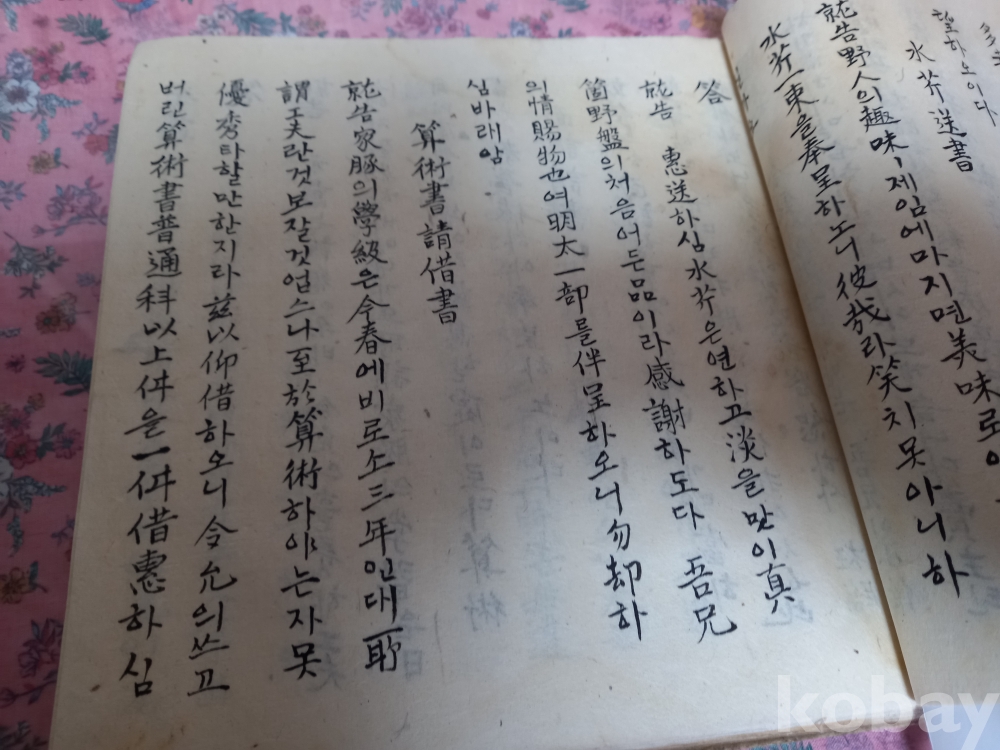 水芹送書
就告野人의趣味, 제임에마지면美味로
水芹一束을奉呈하노니彼哉라笑치못아니하
答
就告 惠送하심水芹은연하고淡을맛이真
箇野盤의처음어든品이라感謝하도다 吾兄
의情賜物也여明太一部를伴呈하오니勿却하
심바래암
算術書請借書
就告家豚의學級은今春에비로소三年인대所
謂工夫란것보잘것업스나至於算術하야는자못
優秀타할만한지라玆以仰借하오니令允의쓰고
버린算術書普通科以上件을一件借惠하심
kobay